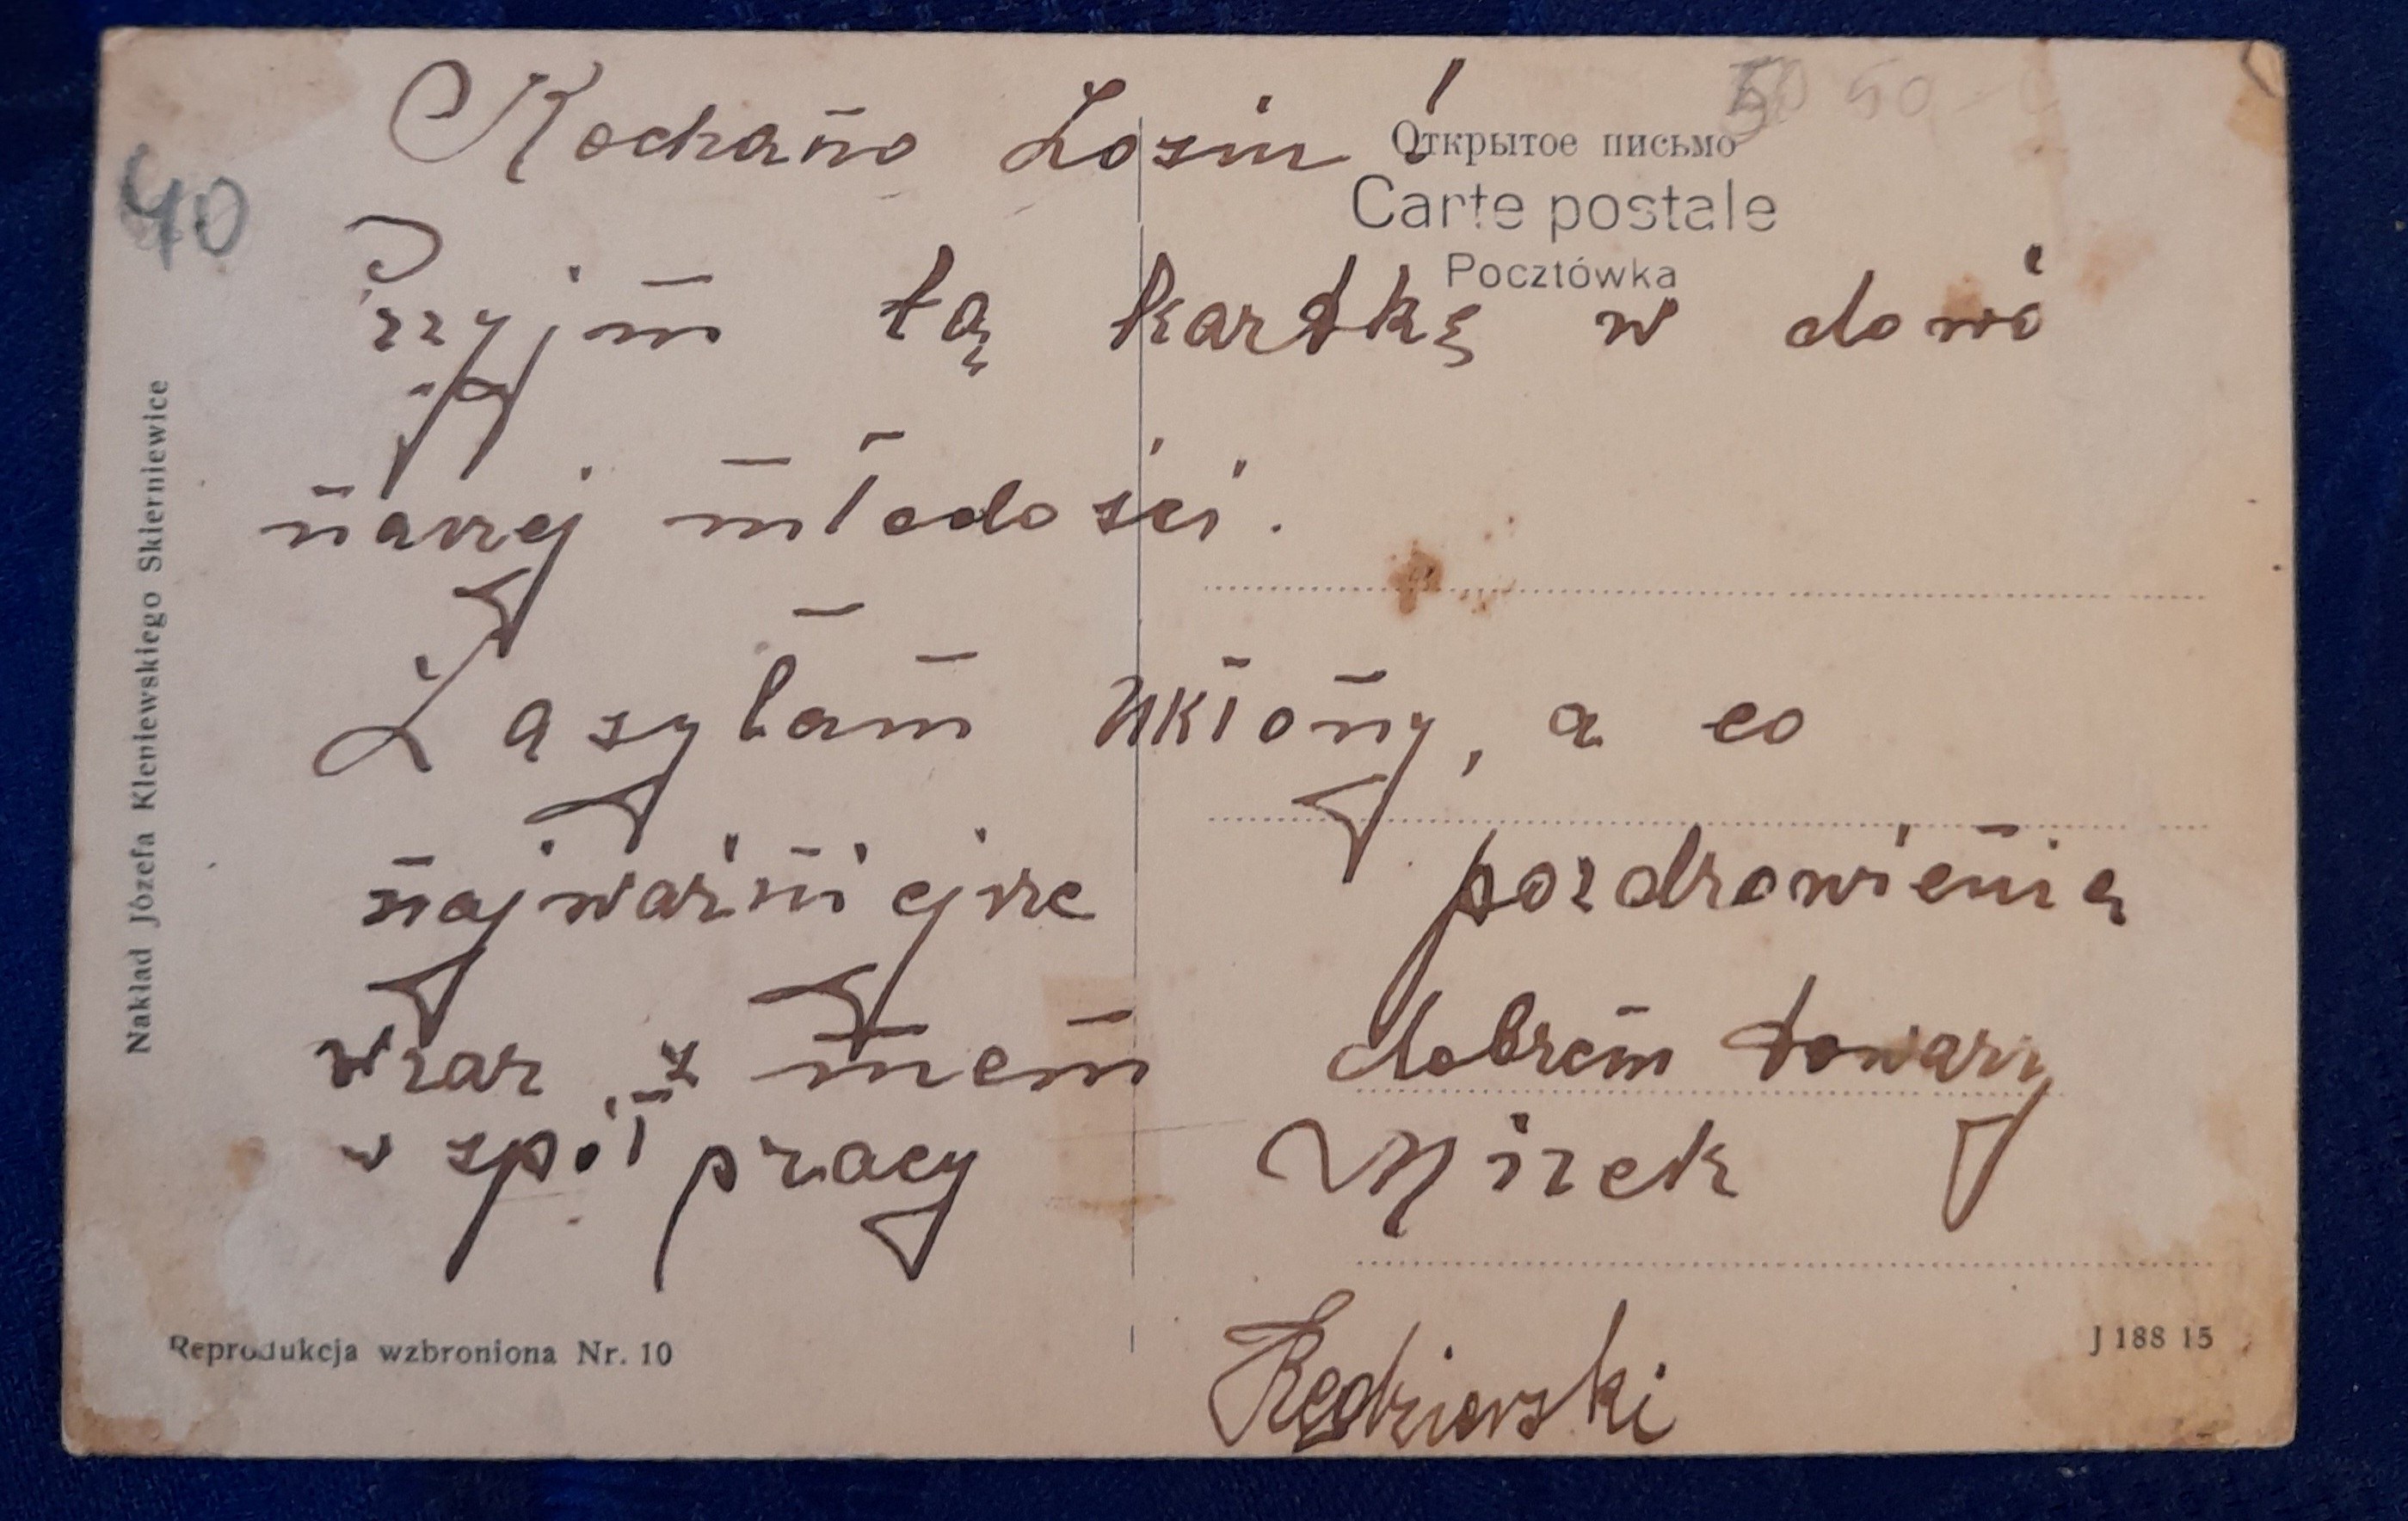 40
50 50
Kochano Zosiu!
Открытое письмо
Carte postale
Pocztówka
Przyjm tą kartkę w dowó
naszej młodości.
Zasyłam ukłony, a co
najważniejsze pozdrowienia
wraz z mem dobrem towarzy
współ pracy Mirek
Kędzierski
Nakład Józefa Kleniewskiego Skierniewice
Reprodukcja wzbroniona Nr. 10
J 188 15